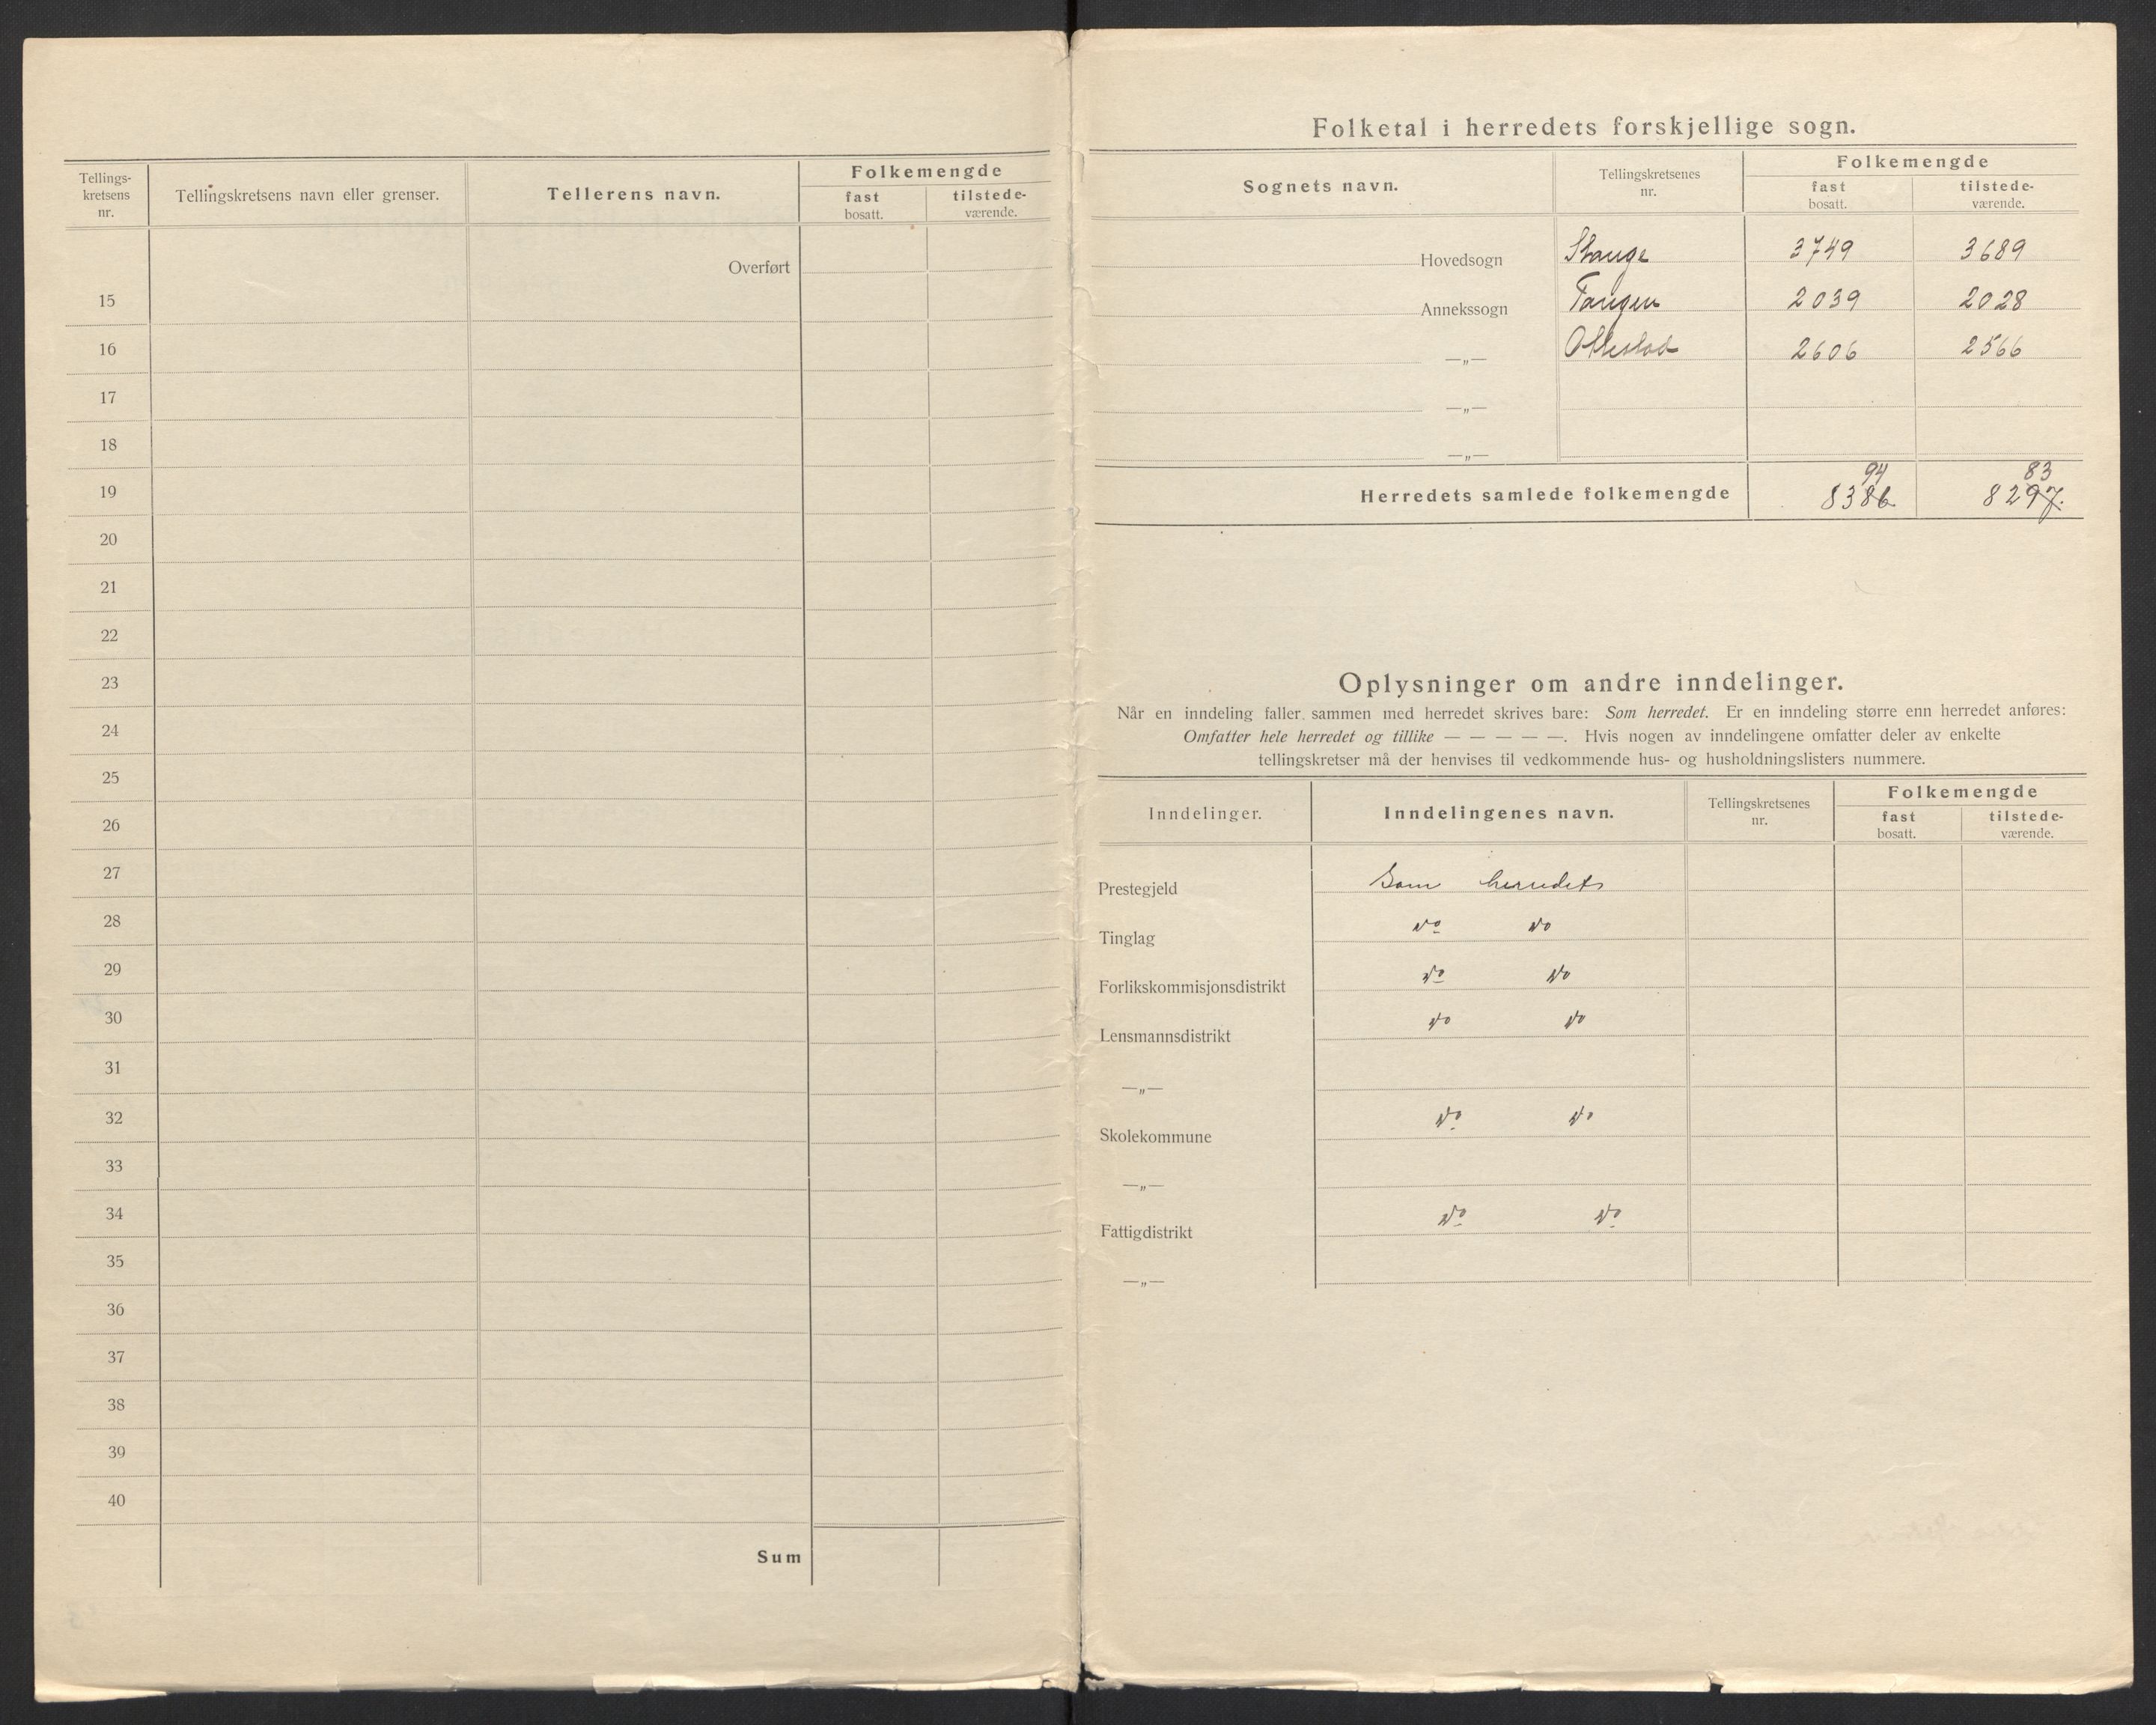 Tellings-
kretsens
nr.
Tellingskretsens navn eller grenser.
Tellerens navn.
Folkemengde
fast
bosatt.
tilstede-
værende.
Overført
15
16
17
18
19
20
21
22
23
24
25
26
27
28
29
30
31
32
33
34
35
36
37
38
39
40
Sum
Folketal i herredets forskjellige sogn.
Sognets navn.
Tellingskretsenes
nr.
Folkemengde
fast
bosatt.
tilstede-
værende.
Hovedsogn Stange 3749 3689
Annekssogn Tangen 2039 2028
—„— Ottestad 2606 2566
—„—
—„—
94 83
Herredets samlede folkemengde 8386 8297.
Oplysninger om andre inndelinger.
Når en inndeling faller sammen med herredet skrives bare: Som herredet. Er en inndeling større enn herredet anføres:
Omfatter hele herredet og tillike — — — — —. Hvis nogen av inndelingene omfatter deler av enkelte
tellingskretser må der henvises til vedkommende hus- og husholdningslisters nummere.
Inndelinger.
Inndelingenes navn.
Tellingskretsenes
nr.
Folkemengde
fast
bosatt.
tilstede-
værende.
Prestegjeld Som herredet
Tinglag do do
Forlikskommisjonsdistrikt do do
Lensmannsdistrikt do do
—„—
Skolekommune do do
—„—
Fattigdistrikt do do
—„—